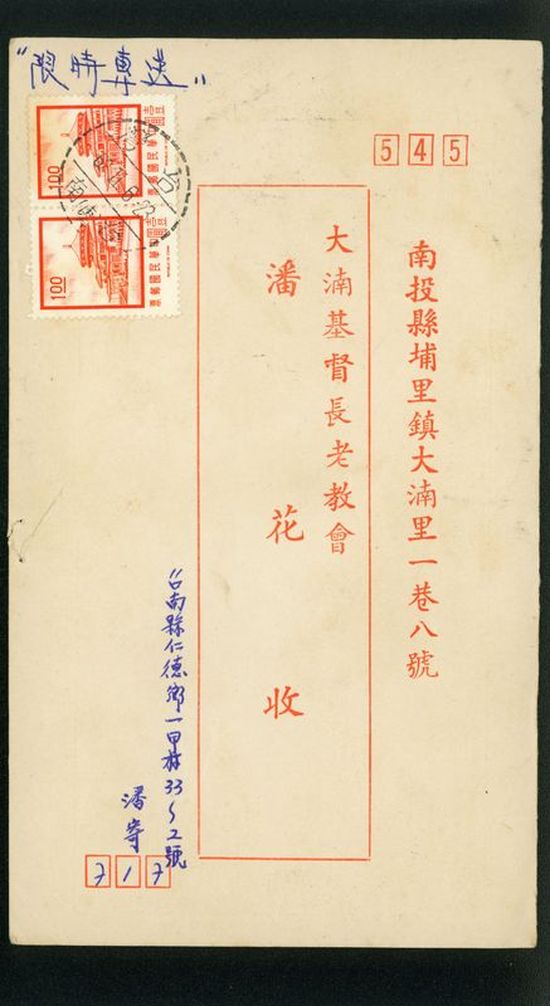 "限時專送"
545
南投縣埔里鎮大湳里一巷八號
大湳基督長老教會
潘花收
台南縣仁德鄉一甲村33~2號
潘寄
717
中華民國郵票
1.00
中華民國郵票
1.00